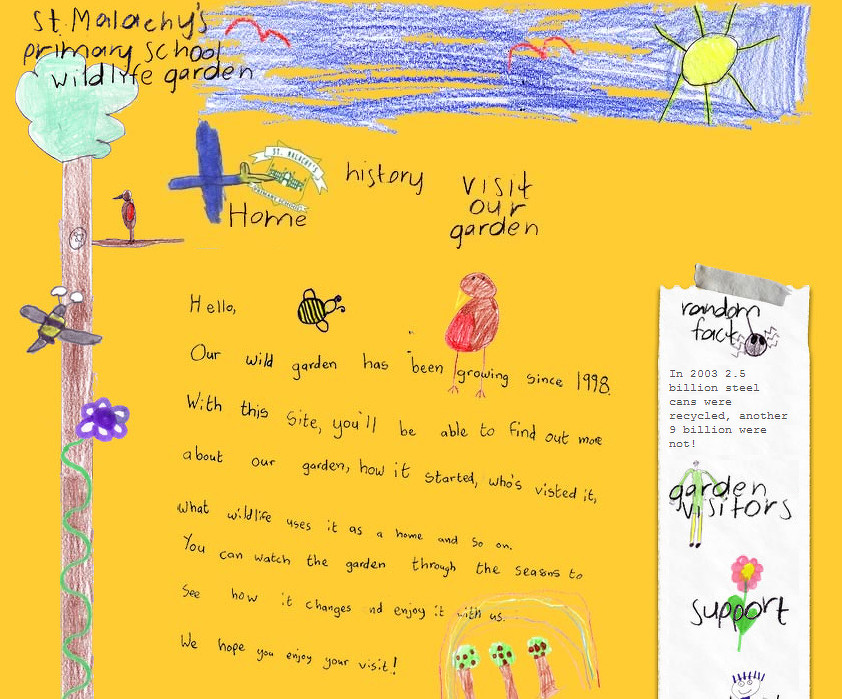 St Malachy's
primary school
wildlife garden
ST. MALACHY'S
PRIMARY SCHOOL
Home
history
visit
our
garden
Hello,
Our wild garden has been growing since 1998.
With this site, you'll be able to find out more
about our garden, how it started, who's visted it,
what wildlife uses it as a home and so on.
You can watch the garden through the seasons to
see how it changes nd enjoy it with us.
We hope you enjoy your visit!
random
fact
In 2003 2.5
billion steel
cans were
recycled, another
9 billion were
not!
garden
visitors
support